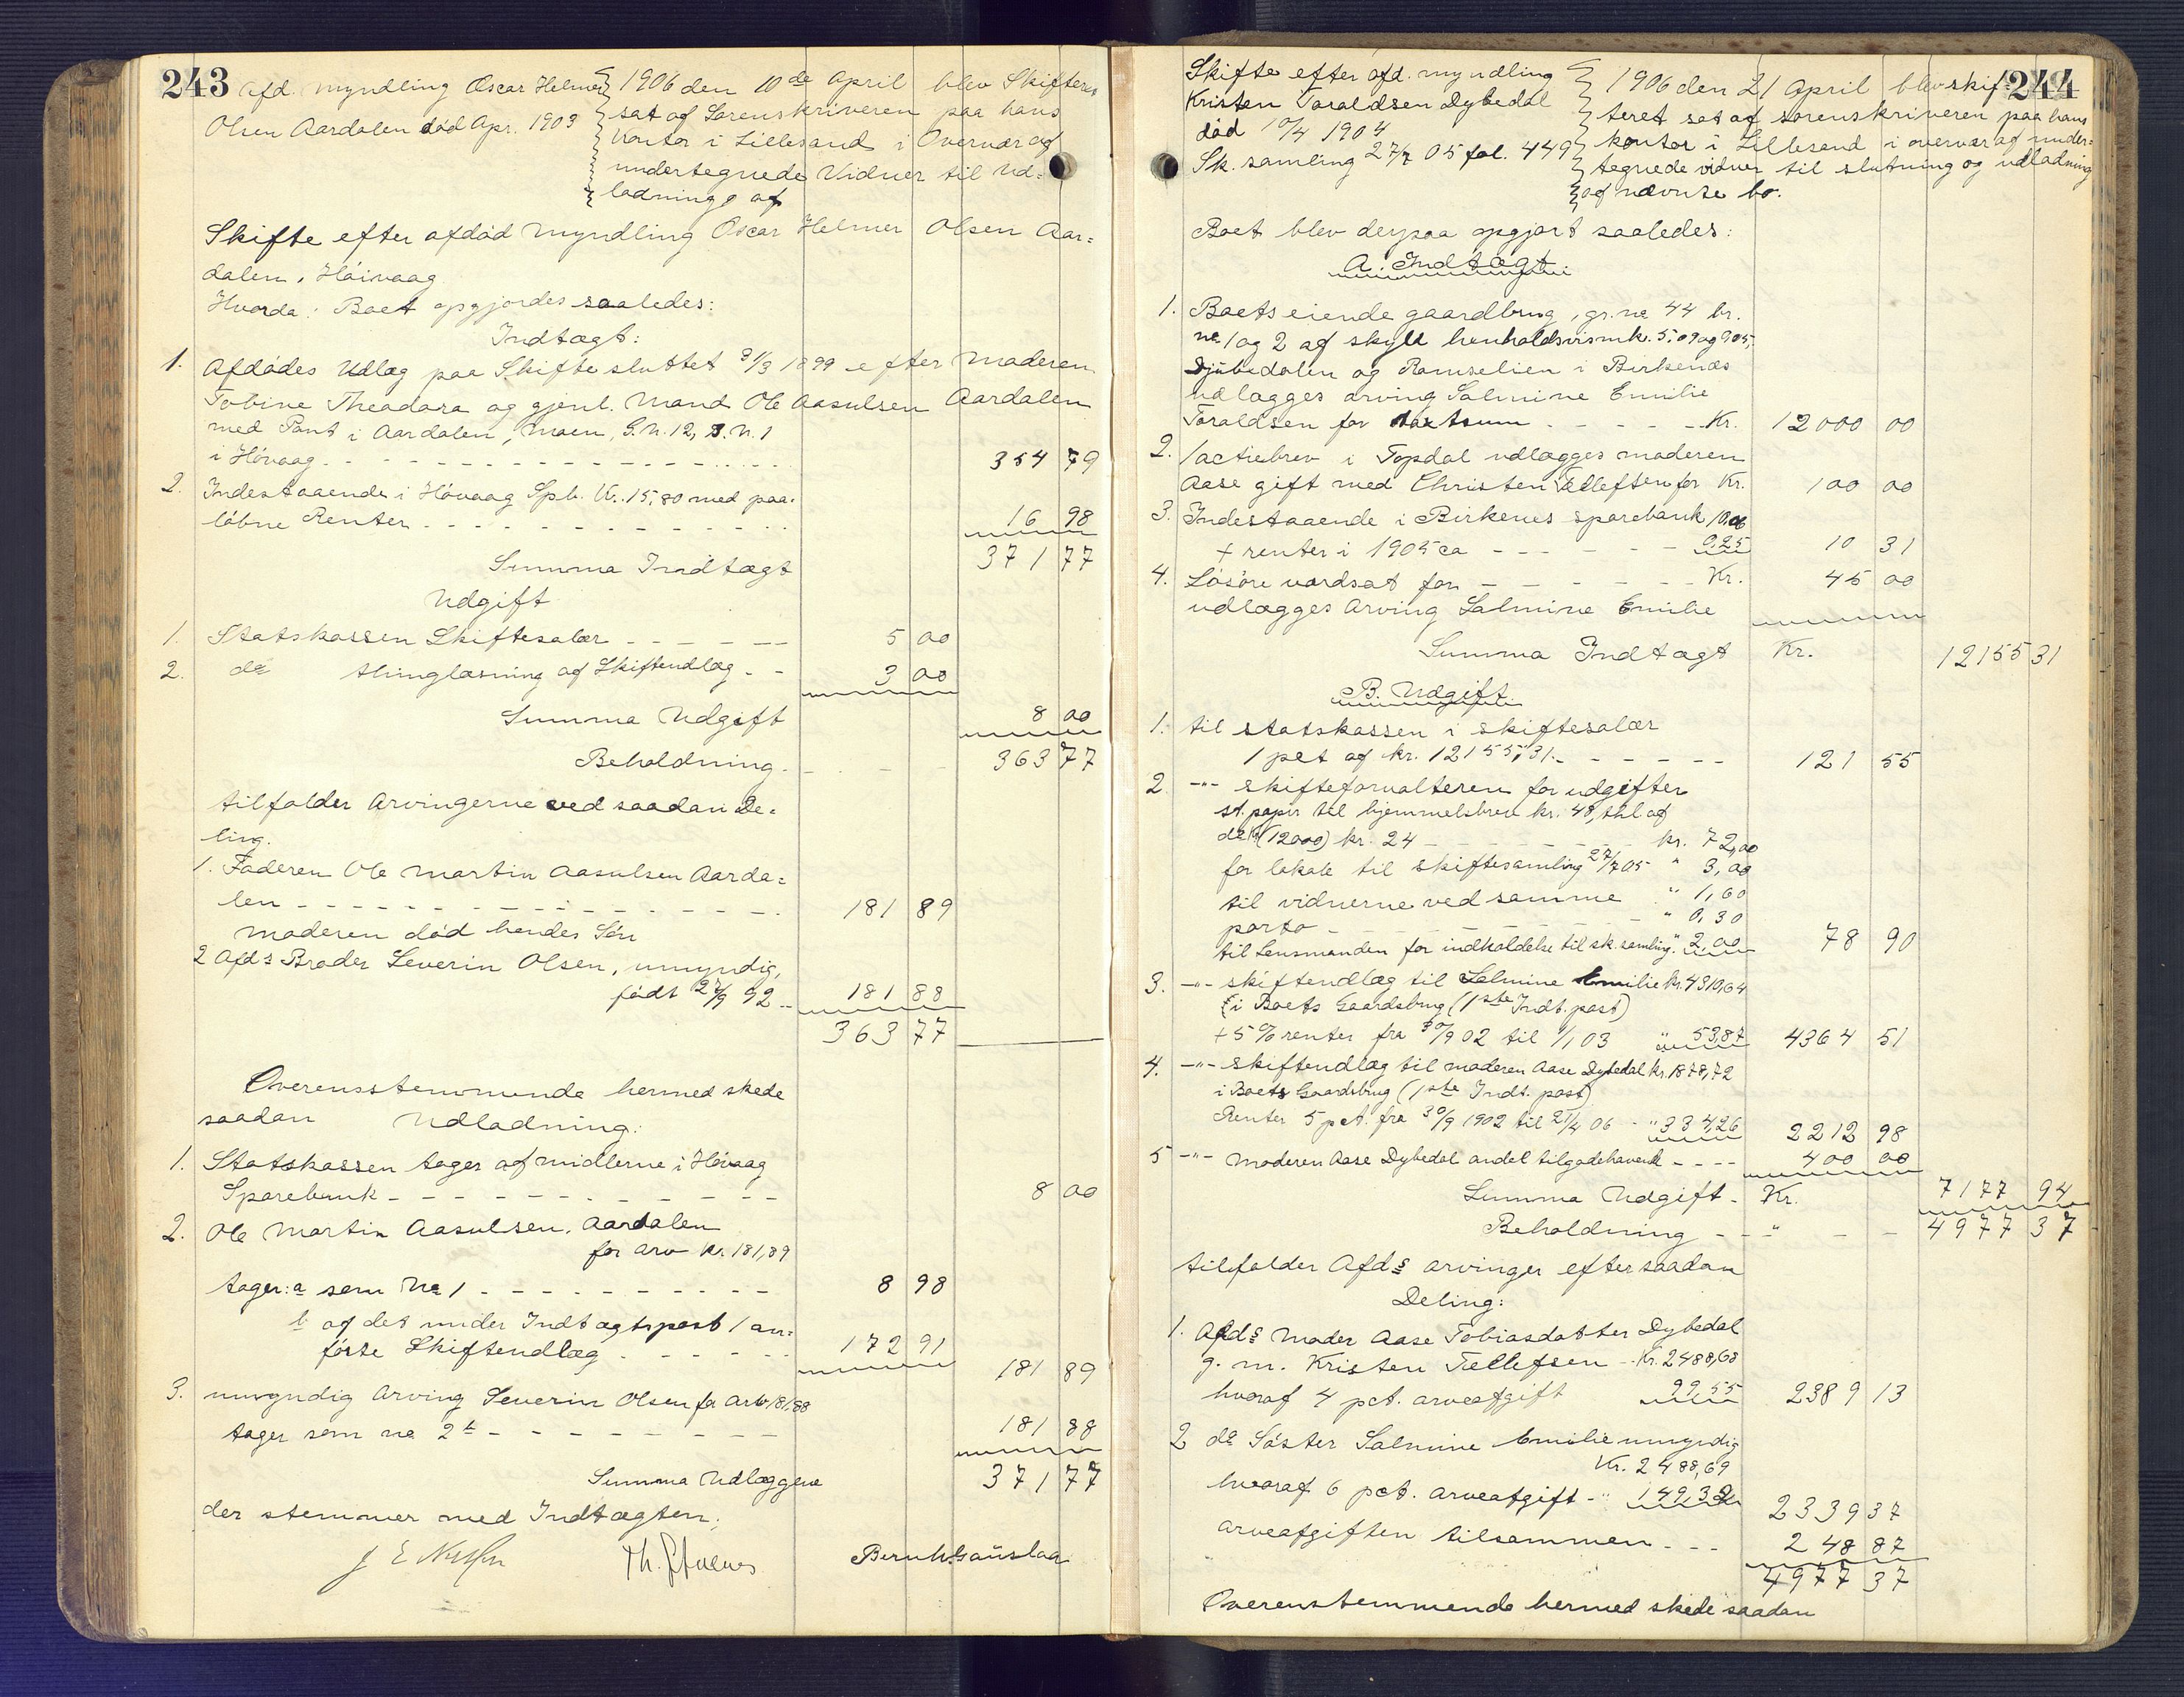 243
Afd. myndling Oscar Helmer
Olsen Aardalen död Apr. 1903
1906 den 10de April blev Skifteret
sat af Sorenskriveren paa hans
Kontor i Lillesand i Overvær af
undertegnede Vidner til Ud-
lodning af
Skifte efter afdöd Myndling Oscar Helmer Olsen Aar-
dalen, Höivaag
Hvorda: Boet opgjordes saaledes:
Indtægt:
1. Afdödes Udlæg paa Skifte sluttet 31/3 1899 efter Moderen
Tobine Theodora og gjenl. Mand Ole Aasulsen Aardalen
med Pant i Aardalen, Moen, G.N. 12, B.N. 1
i Hövaag - - - 354 79
2. Indestaaende i Hövaag Spb. Kr. 15,80 med paa-
löbne Renter - - - 16 98
Summa Indtægt 371 77
Udgift
1. Statskassen Skiftesalær - - - 5 00
2. do thinglæsning af Skifteudlæg - - 3 00
Summa Udgift 8 00
Beholdning - - - 363 77
tilfalder Arvingerne ved saadan De-
ling.
1. Faderen Ole Martin Aasulsen Aarda-
len - - - 181 89
Moderen död hendes Sön
2 Afds Broder Severin Olsen, umyndig,
födt 27/9 92 - - 181 88
363 77
Overensstemmende hermed skede
saadan Udlodning:
1. Statskassen tager af midlerne i Hövaag
Sparebank - - - 8 00
2. Ole Martin Aasulsen, Aardalen
for arv Kr. 181,89
tager: a som No 1 - - - 8 98
b af det under Indtægtspost 1 an-
förte Skifteudlæg - - - 172 91
181 89
3. umyndig Arving Severin Olsen for Arv 181,88
tager som no 2 b - - - 181 88
Summa Udlæggene 371 77
der stemmer med Indtægten.
Bernh. Gauslaa
244
Skifte efter afd. myndling
Kristen Toraldsen Dybedal
död 10/4 1904
Sk. samling 27/7 05 fol. 449
1906 den 21 April blev skif-
teret sat af sorenskriveren paa hans
kontor i Lillesand i overvær af under-
tegnede vidner til slutning og udlodning
af nævnte bo.
Boet blev derpaa opgjort saaledes:
A. Indtægt.
1. Boets eiende gaardbrug, gr. no 44 br.
no 1 og 2 af skyld henholdsvis mk. 5,09 og 905,
Djubedalen og Ramselien i Birkenæs
udlægges arving Salmine Emilie
Toraldsen for taxtsum - - - Kr. 12000 00
2. 1 actiebrev i Topdal udlægges moderen
Aase gift med Christen Tellefsen for Kr. 100 00
3. Indestaaende i Birkenes sparebank 10,06
+ renter i 1905 ca - - - 0,25 10 31
4. Lösöre værdsat for - - - Kr. 45 00
udlægges Arving Salmine Emilie
Summa Indtægt Kr. 12155 31
B. Udgift.
1. til statskassen i skiftesalær
1 pct af kr. 12155,31 - - - 121 55
2 -"- skifteforvalteren for udgifter
st. papir til hjemmelsbrev kr. 48, thl af
do (12000) kr. 24 - - - kr. 72,00
for lokale til skiftesamling 27/7 05 " 3,00
til vidnerne ved samme " 1,60
porto - - - " 0,30
til Lensmanden for indkaldelse til sk. samling " 2,00 78 90
3. -"- skifteudlæg til Salmine Emilie kr. 4310,64
i Boets Gaardsbrug (1ste Indt. post)
+ 5 % renter fra 30/9 02 til 1/1 03 " 53,87 4364 51
4. -"- skifteudlæg til moderen Aase Dybedal kr. 1878,72
i Boets Gaardsbrug (1ste Indt. post)
Renter 5 pct. fra 30/9 1902 til 21/4 06 - " 334,26 2212 98
5 -"- Moderen Aase Dybedal andel tilgodehavende - - - 400 00
Summa Udgift - Kr. 7177 94
Beholdning - - " - - 4977 37
tilfalder Afds arvinger efter saadan
Deling:
1. Afds Moder Aase Tobiasdatter Dybedal
g. m. Kristen Tellefsen - Kr. 2488,68
hvoraf 4 pct. arveafgift 99,55 2389 13
2 do Söster Salmine Emilie umyndig
Kr. 2488,69
hvoraf 6 pct. arveafgift - " 149,32 2339 37
arveafgiften tilsammen - - - 248 87
4977 37
Overensstemmende hermed skede saadan